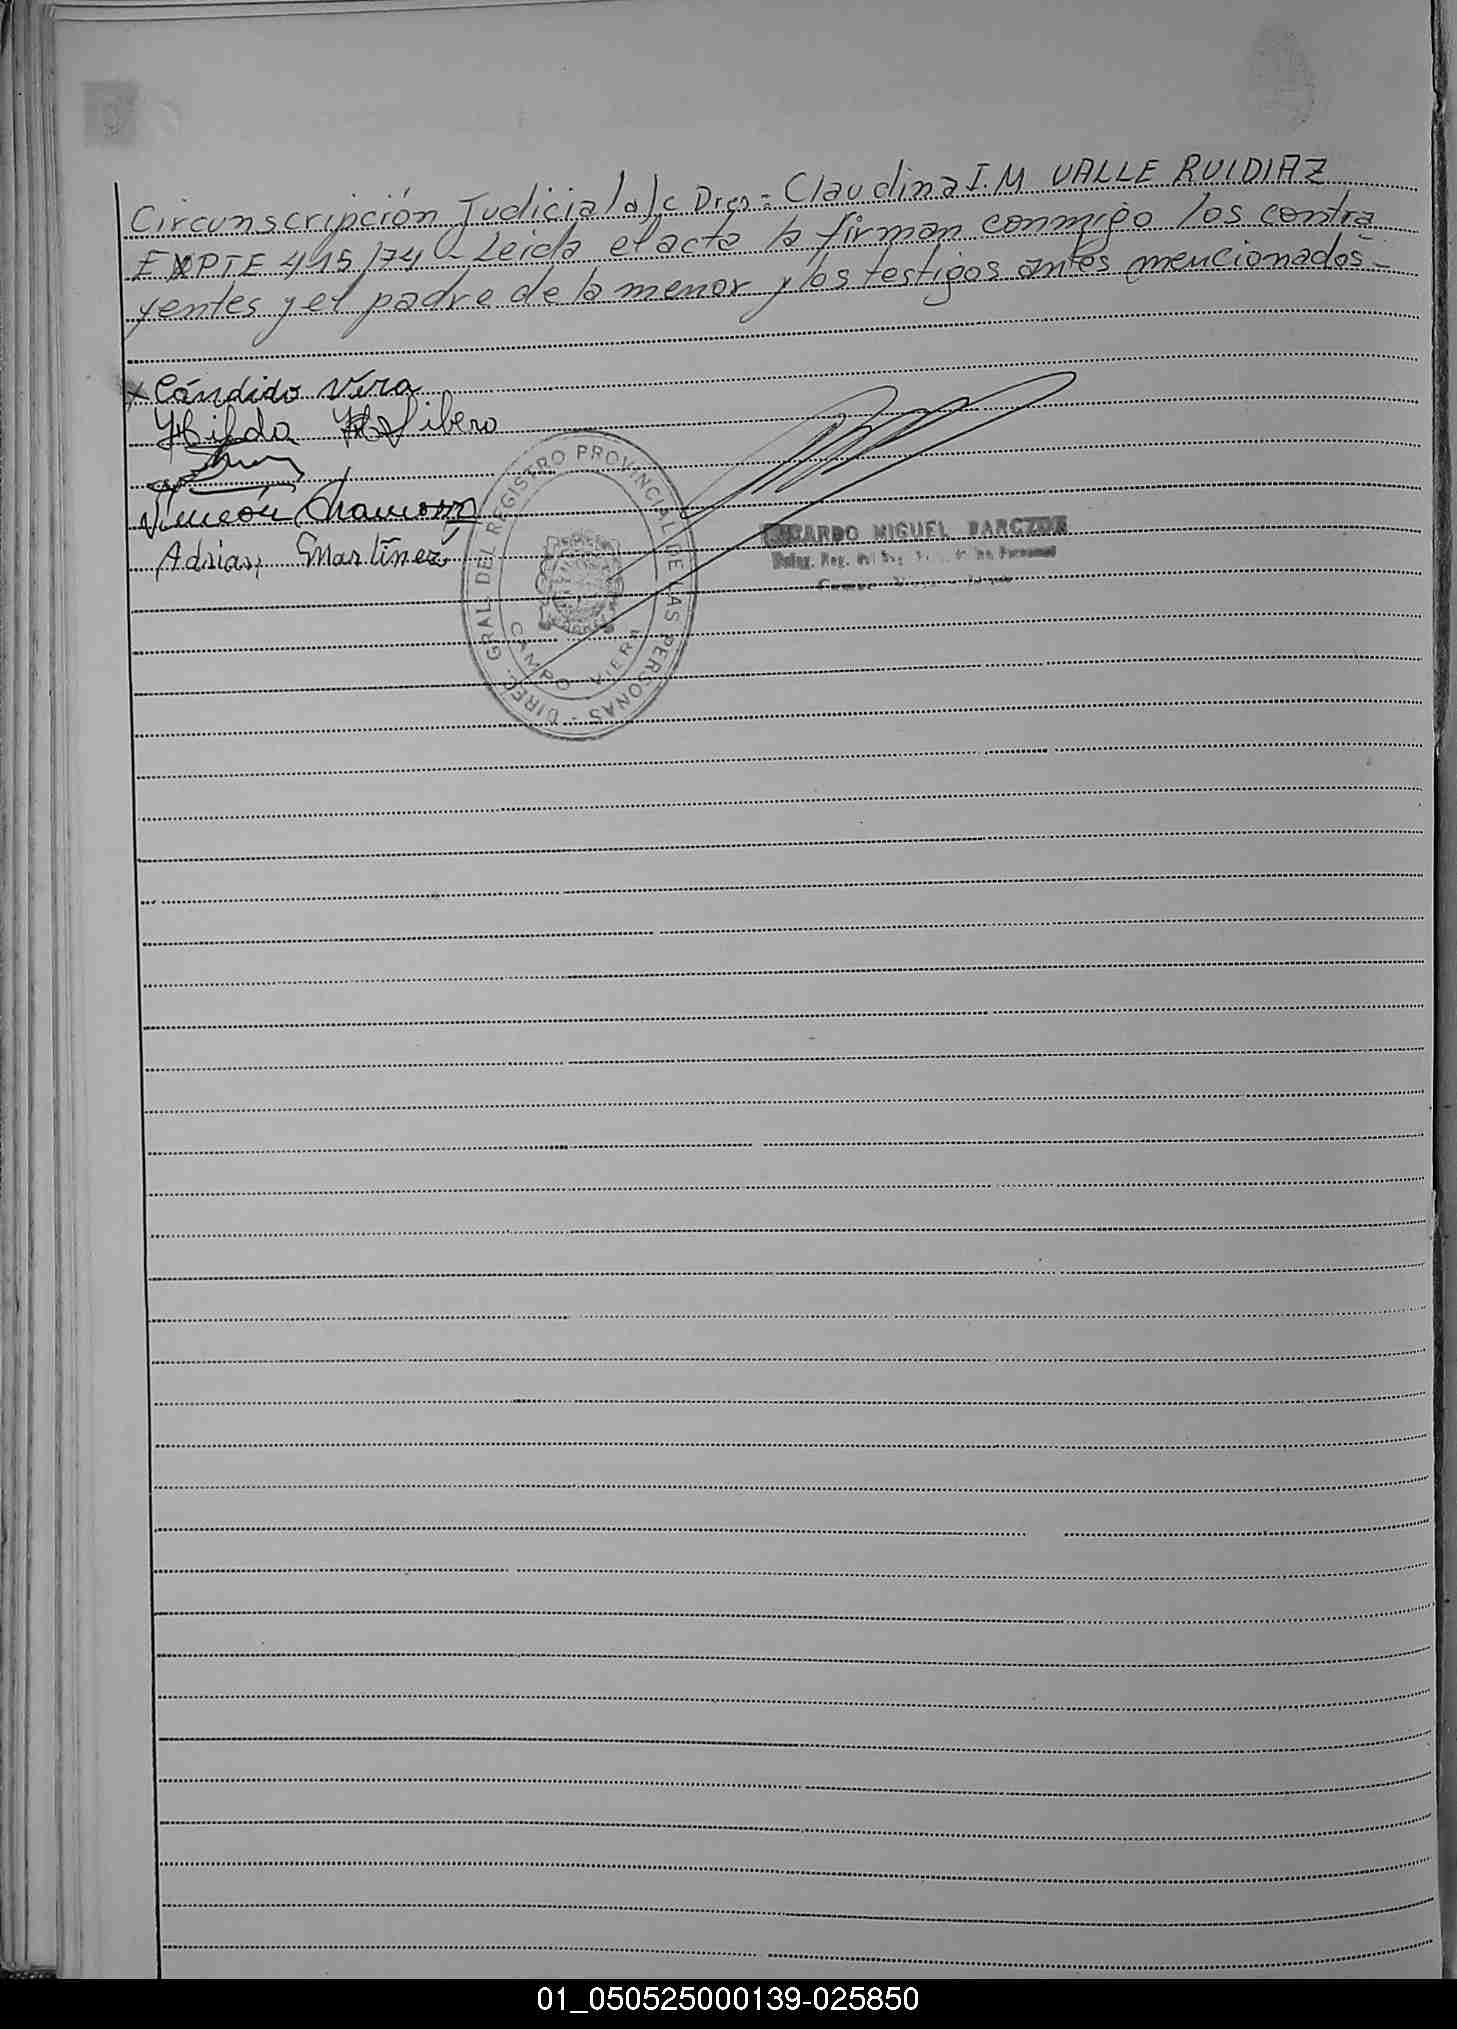 Circunscripción Judicial a/c Dra: Claudina I. M VALLE RUIDIAZ
EXPTE 415/74 - Leida el acta la firman conmigo los contra
yentes y el padre de la menor y los testigos antes mencionados -
Cándido Vera
Hilda
Simeón
Adrian Martínez
DIREC. GRAL. DEL REGISTRO PROVINCIAL DE LAS PERSONAS -
CAMPO VIERA
RICARDO MIGUEL
01_050525000139-025850